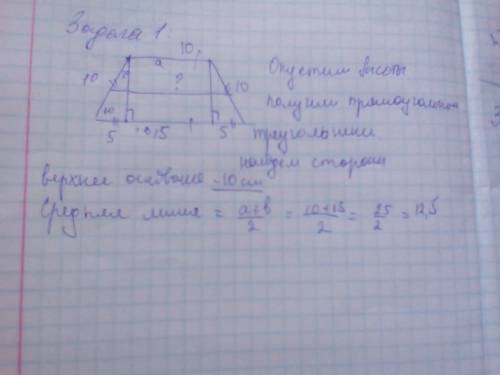 Задача 1.
10
a
10
?
10
5
15
5
Опустим высоты
получим прямоугольной
треугольники.
найдем стороны
верхнее основание - 10 см
Средняя линия = a+b/2 = 10+15/2 = 25/2 = 12,5